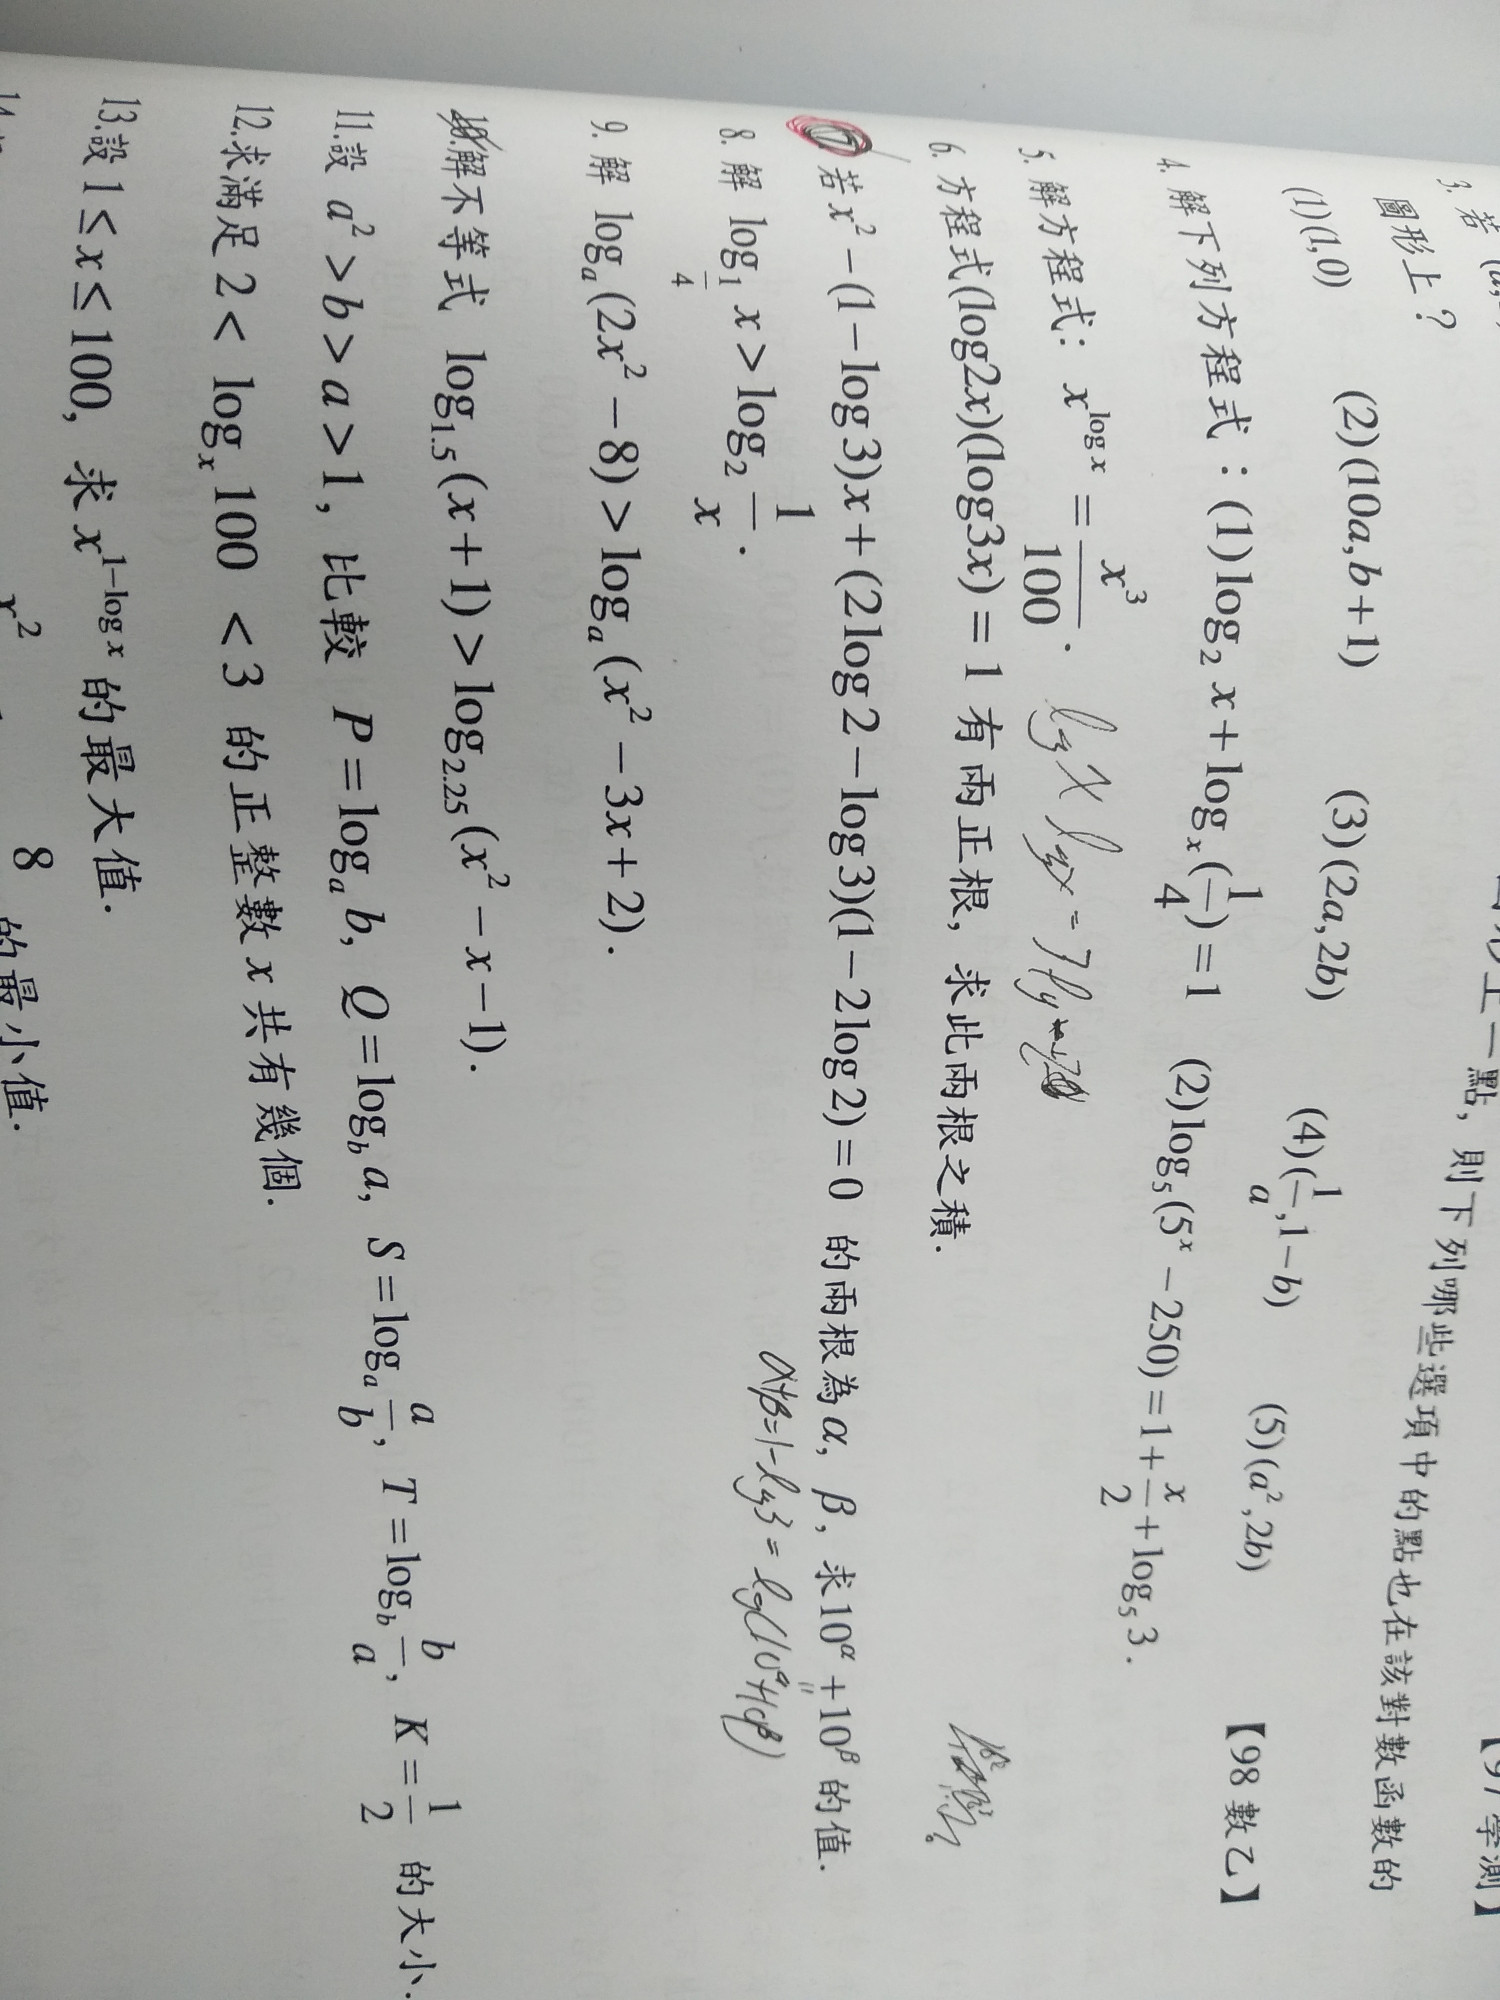 3. 若 (a,
【97學測】
點, 則下列哪些選項中的點也在該對數函數的
圖形上?
(1)(1,0) (2)(10a,b+1) (3)(2a,2b) (4)(1/a,1−b) (5)(a²,2b)
4. 解下列方程式:(1)log₂ x+logₓ(1/4)=1 (2)log₅(5ˣ−250)=1+x/2+log₅3. 【98數乙】
5. 解方程式: x^(log x) = x³/100.
6. 方程式(log2x)(log3x)=1有兩正根, 求此兩根之積.
7 若x²−(1−log3)x+(2log2−log3)(1−2log2)=0 的兩根為α, β, 求10^α+10^β的值.
α+β=1−log3=log(10^α+10^β)
8. 解 log_(1/4) x>log₂ 1/x.
9. 解 logₐ(2x²−8)>logₐ(x²−3x+2).
10.解不等式 log₁.₅(x+1)>log₂.₂₅(x²−x−1).
11.設 a²>b>a>1, 比較 P=logₐb, Q=log_b a, S=logₐ a/b, T=log_b b/a, K=1/2 的大小.
12.求滿足 2<logₓ100 <3 的正整數x共有幾個.
13.設1≤x≤100, 求x^(1−log x)的最大值.
x² 8 的最小值.